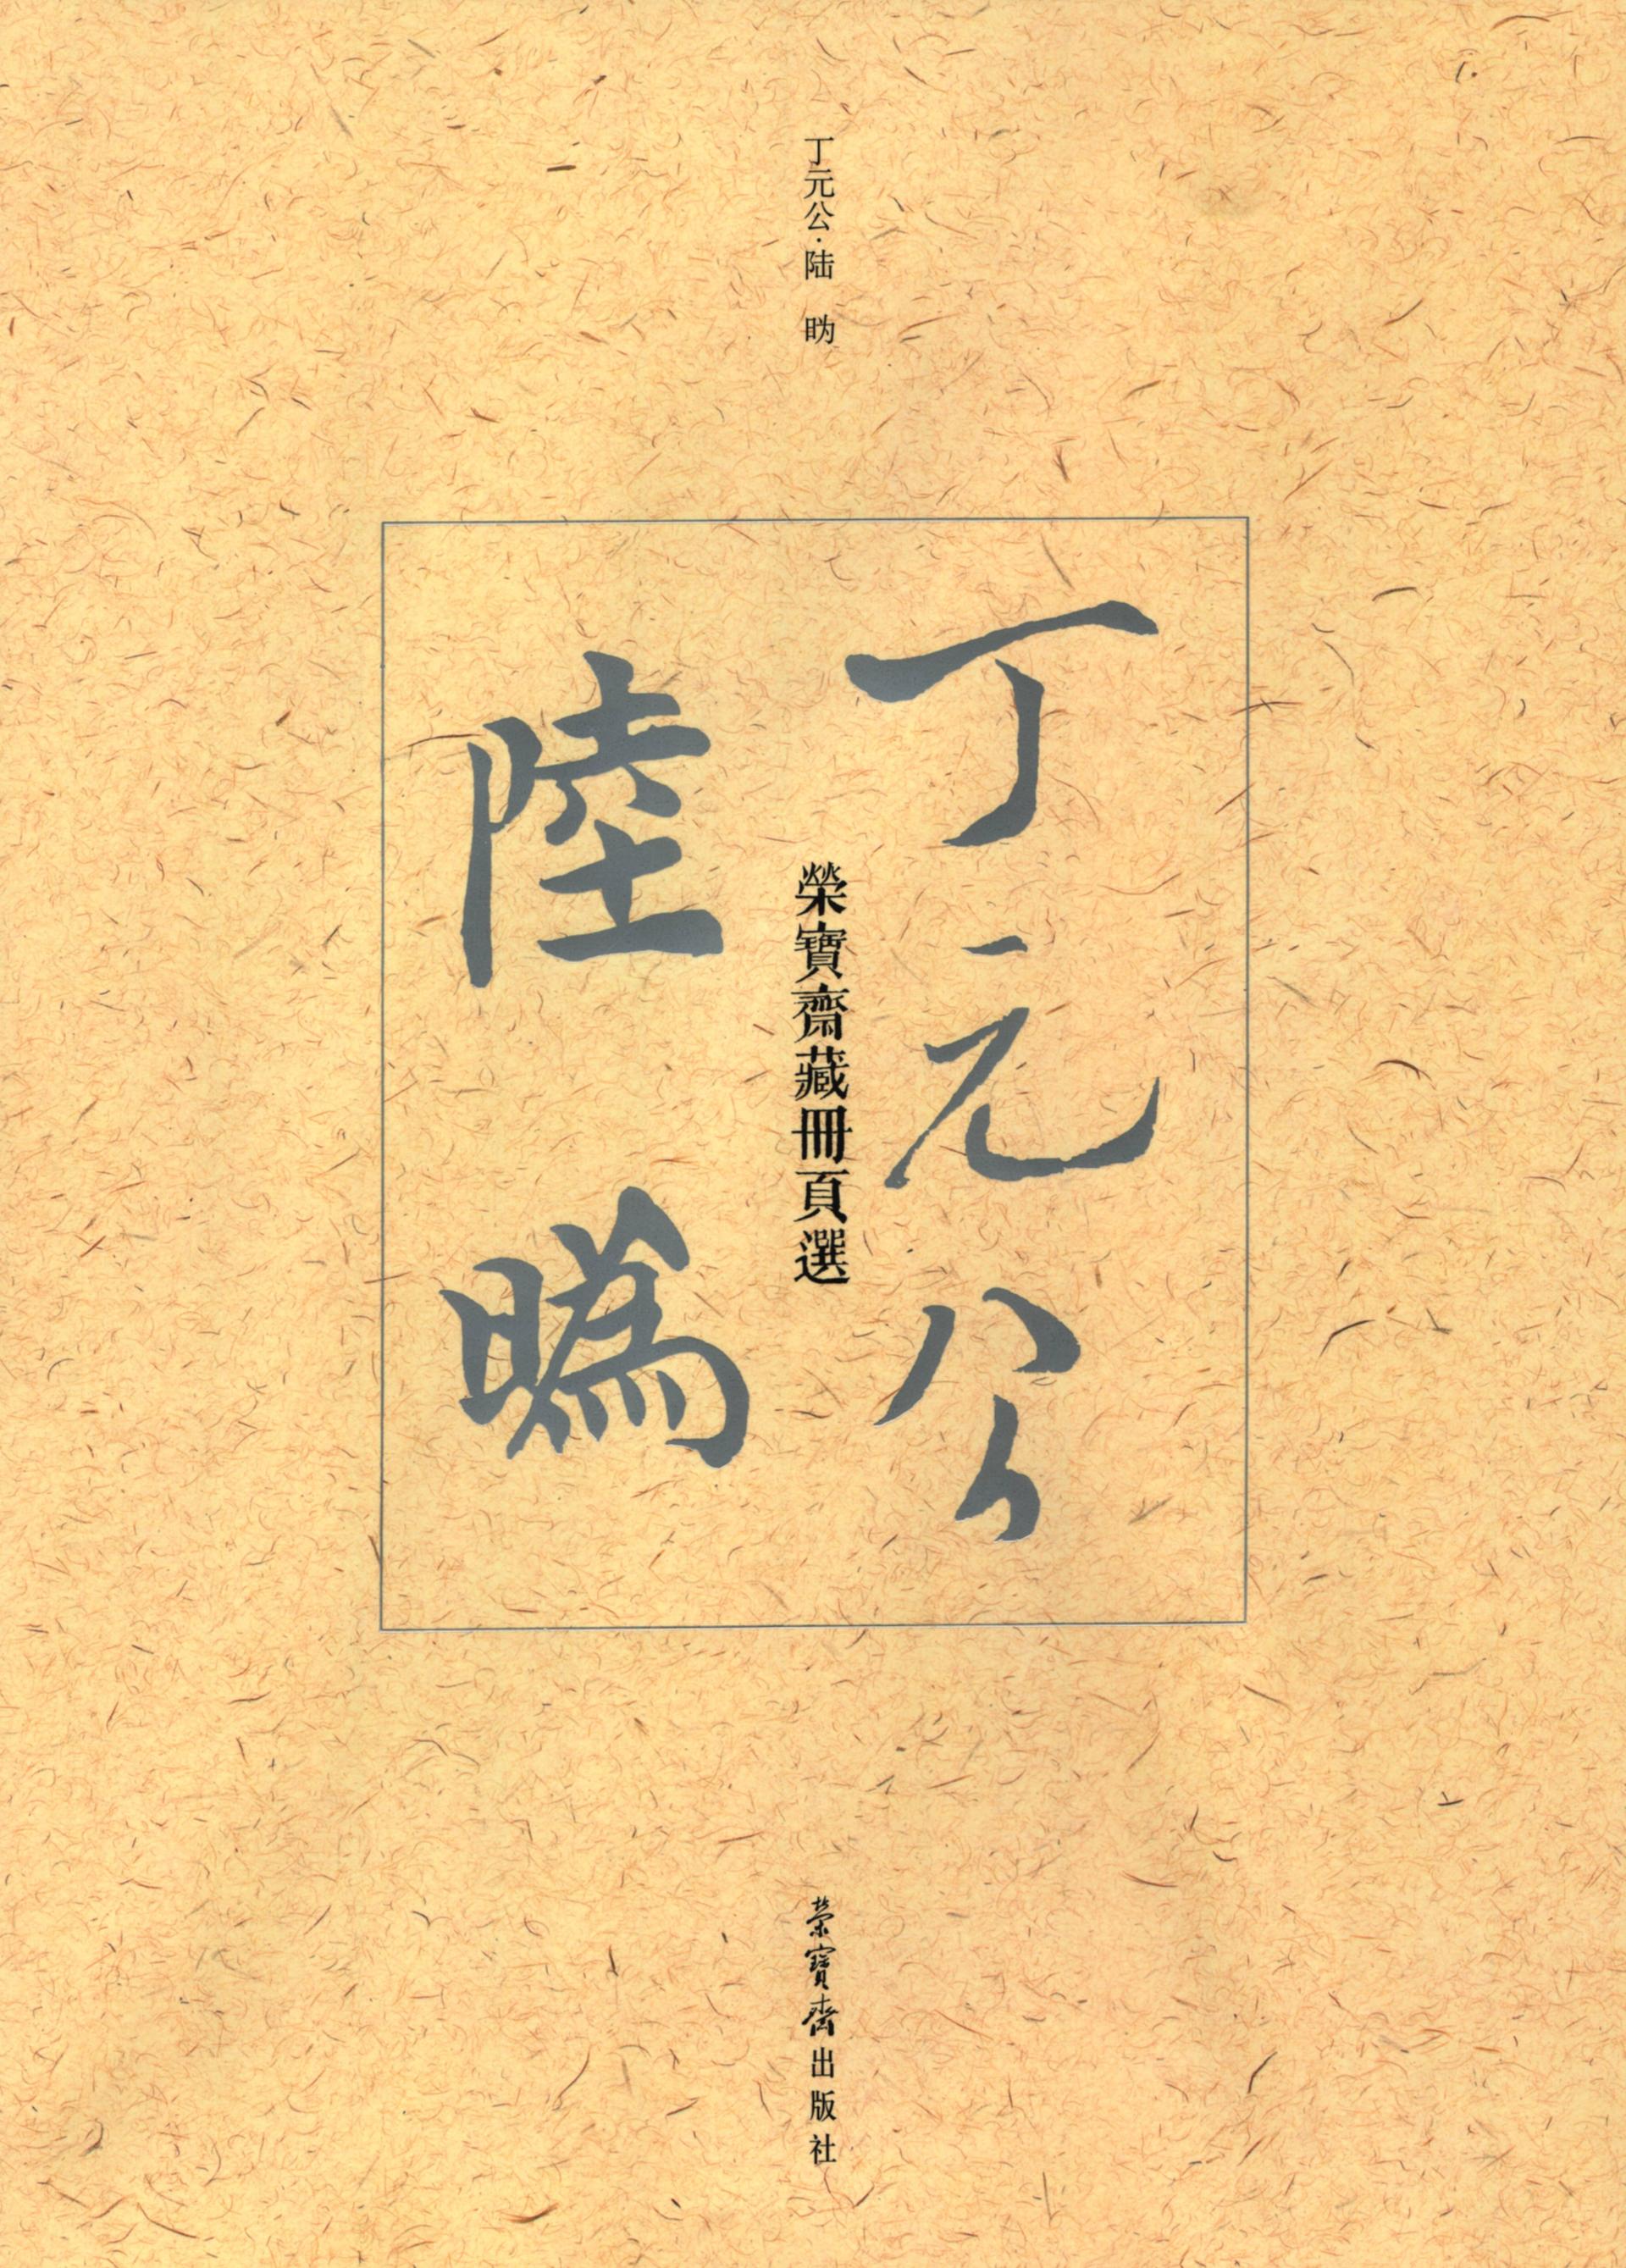 丁元公·陆 𬀩
丁元公
陸㬙
榮寶齋藏冊頁選
榮寶齋出版社